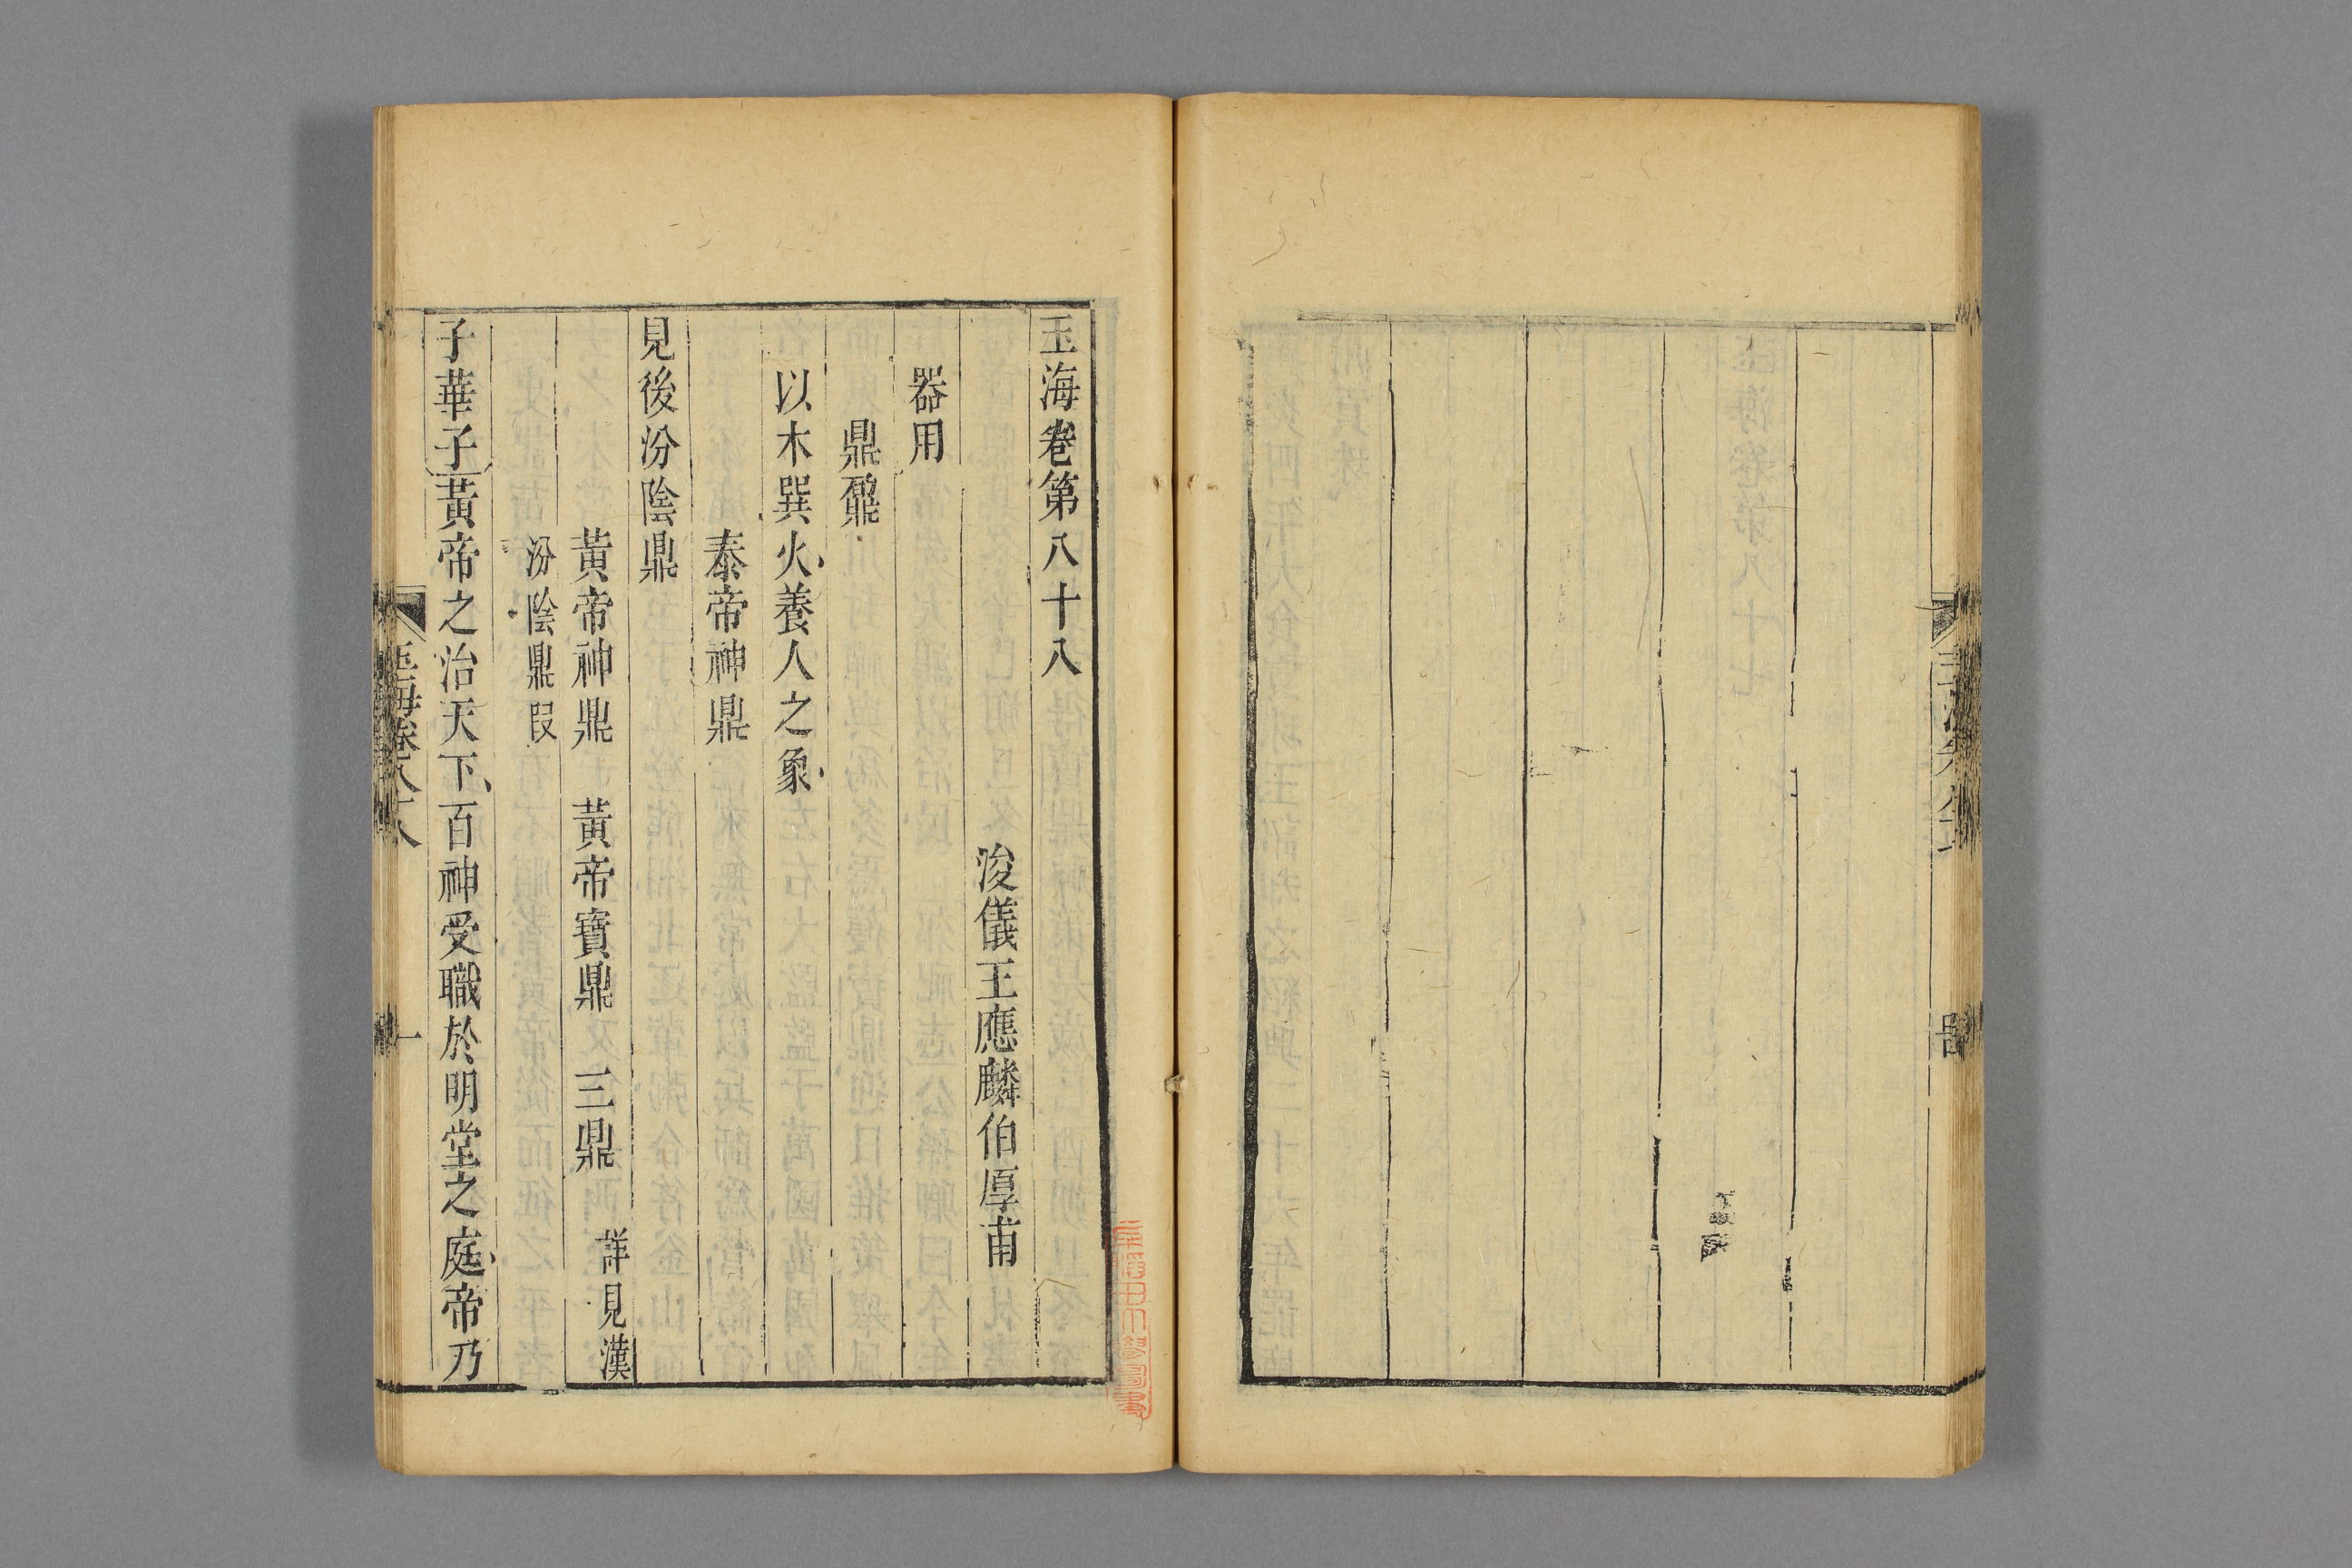 玉海卷第八十八
浚儀王應麟伯厚甫
器用
鼎鼐
以木巽火養人之象
泰帝神鼎
見後汾陰鼎
黃帝神鼎 黃帝寶鼎 三鼎 詳見漢
汾陰鼎叚
子華子黃帝之治天下百神受職於明堂之庭帝乃
玉海卷八十八
一